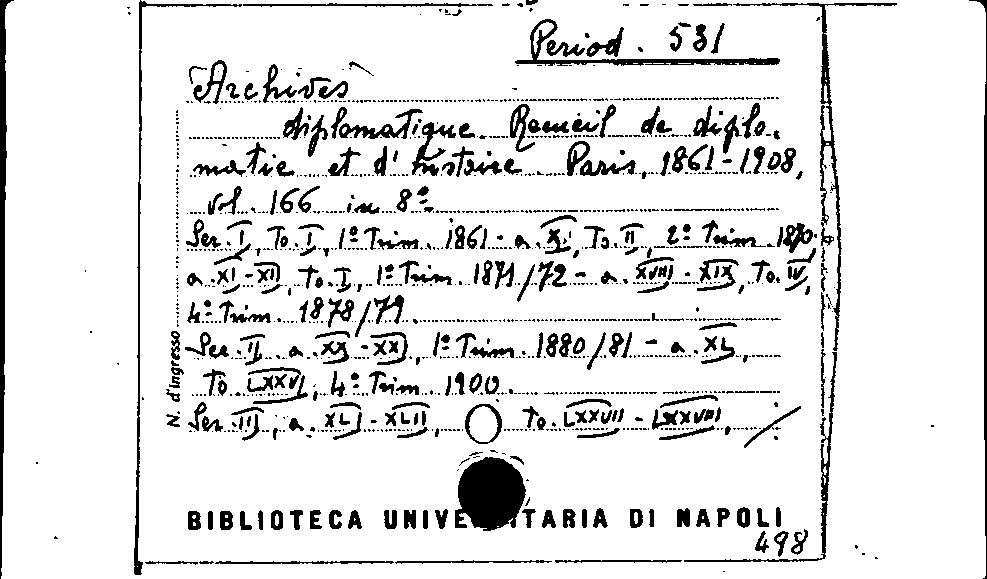 Period. 531
Archives
diplomatique. Recueil de diplo-
matie et d'histoire. Paris, 1861-1908,
vol. 166 in 8º
Ser. I, To. I, 1º Trim. 1861 - a. X, To. II, 2º Trim. 1870;
a. XI-XII, To. I, 1º Trim. 1871/72 - a. XVIII-XIX, To. IV,
4º Trim. 1878/79.
Ser. II a. XX-XXI, 1º Trim. 1880/81 - a. XL,
To. LXXVI, 4º Trim. 1900.
Ser. III, a. XLI-XLII, To. LXXVII-LXXVIII, /
N. d'ingresso
BIBLIOTECA UNIVERSITARIA DI NAPOLI
498